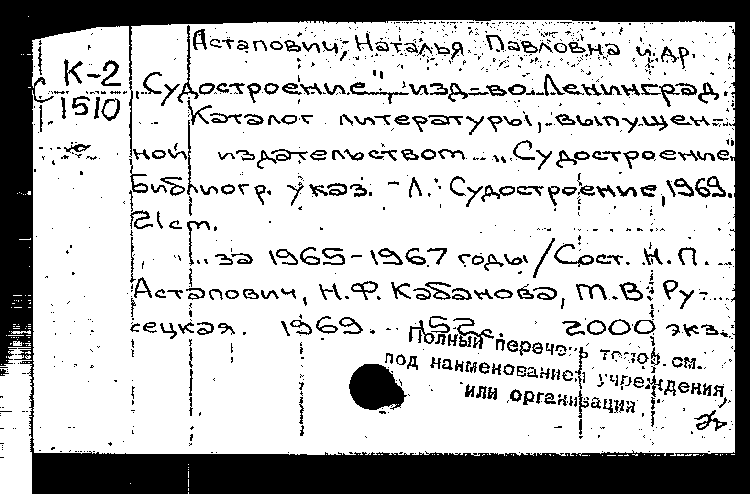 Астапович, Наталья Павловна и др.
С К-2
1510
„Судостроение", изд-во. Ленинград.
Каталог литературы, выпущен-
ной издательством „Судостроение"
Библиогр. указ. - Л.: Судостроение, 1969.
21 см.
... за 1965-1967 годы / Сост. Н.П.
Астапович, Н.Ф. Кабанова, Т.В. Ру-
сецкая. 1969. 152 с. 2000 экз.
Полный перечень томов см.
под наименованием учреждения,
или организации